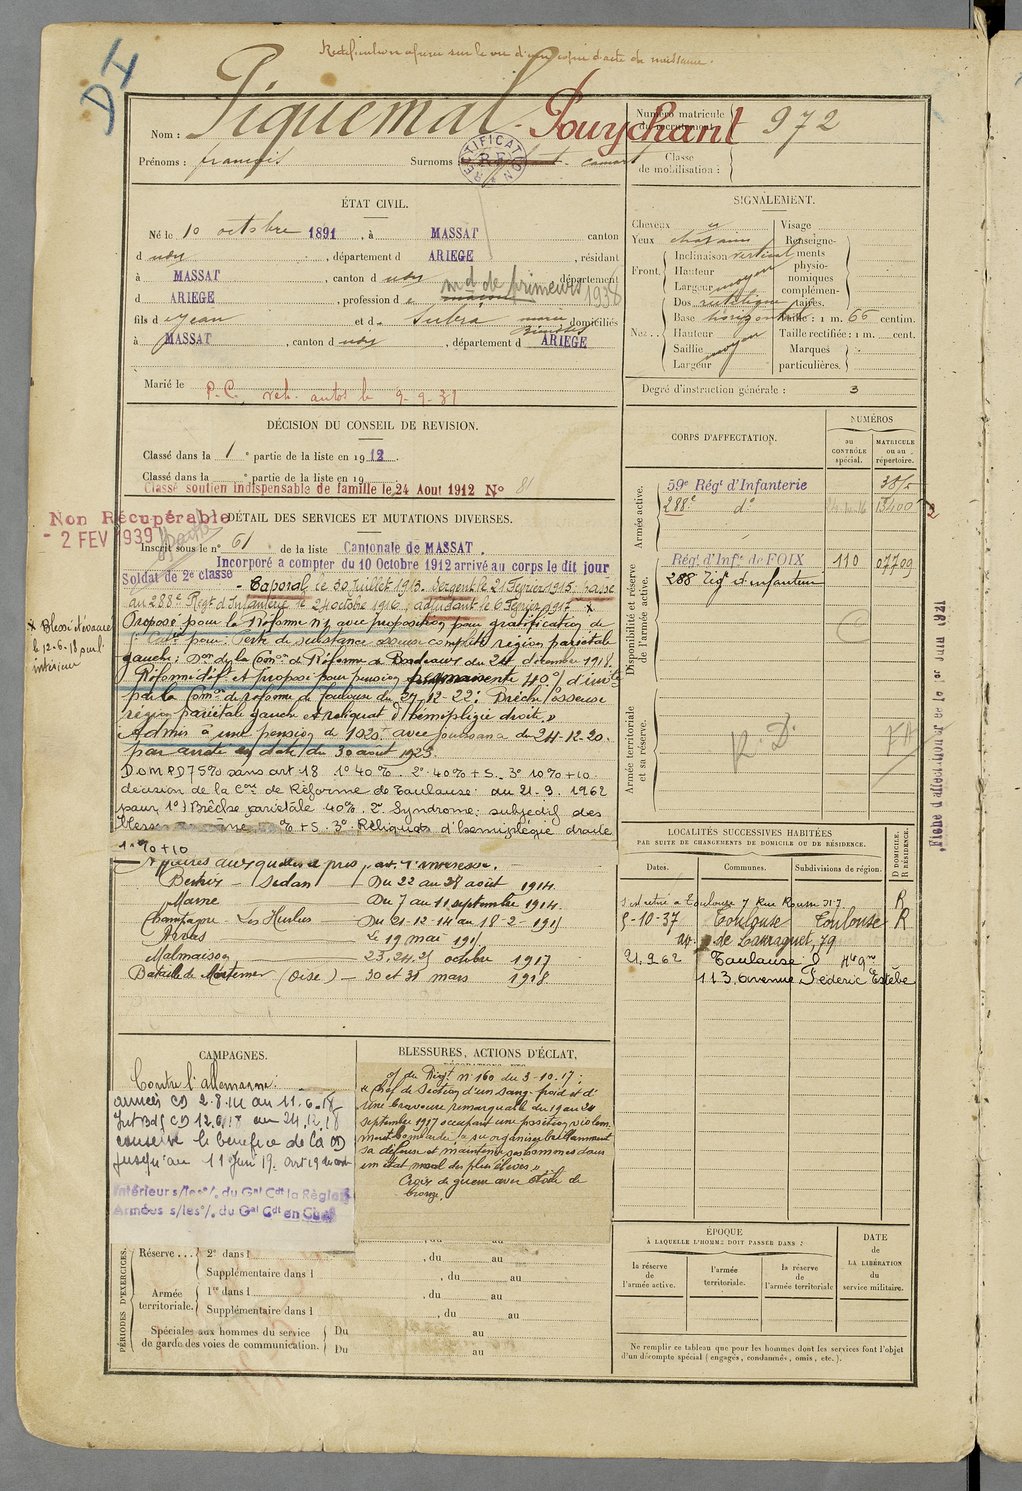 Rectification opérée sur le vu d'une copie d'acte de naissance.
D4
Nom : Piquemal Pouychant
Numéro matricule du recrutement : 972
Prénoms : françois
Surnoms :
RECTIFICATION
Classe de mobilisation :
ÉTAT CIVIL.
Né le 10 octobre 1891, à MASSAT canton
d udt, département d ARIEGE, résidant
à MASSAT, canton d udt département
d ARIEGE, profession d e maçon md de primeurs 1938
fils d e Jean et d e Subra marie domiciliés
à MASSAT, canton d udt, département d ARIEGE
Marié le
P.C. autos le 9-9-31
SIGNALEMENT.
Cheveux
Yeux
Front. Inclinaison vertical
Hauteur
Largeur moyen
Nez... Dos rectiligne
Base horizontale
Hauteur
Saillie moyen
Largeur
Visage
Renseignements physionomiques complémentaires.
Taille : 1 m. 66 centim.
Taille rectifiée : 1 m. cent.
Marques particulières.
Degré d'instruction générale : 3
DÉCISION DU CONSEIL DE REVISION.
Classé dans la 1e partie de la liste en 1912.
Classé dans la e partie de la liste en 19
Classé soutien indispensable de famille le 24 Aout 1912 No 81
Non Récupérable
- 2 FEV 1939
DÉTAIL DES SERVICES ET MUTATIONS DIVERSES.
Inscrit sous le no 61 de la liste Cantonale de MASSAT.
Incorporé a compter du 10 Octobre 1912 arrivé au corps le dit jour
Soldat de 2e classe
- Caporal le 30 Juillet 1913. Sergent le 21 Février 1915. Passé
au 288e Régt d'Infanterie le 24 octobre 1916, adjudant le 6 Février 1917. x
x Blessé
le 12-6-18
Proposé pour la Réforme n°1 avec proposition pour gratification de
pour : Perte de substance osseuse complète région pariétale
gauche ; Don de la Comon de Réforme de Bordeaux du 24 décembre 1918.
Réformé déf. et proposé pour pension permanente 40% d'invté
par la Comon de réforme de Toulouse du 27-12-22 : Brèche osseuse
région pariétale gauche et reliquat d'hémiplégie droite.»
Admis à une pension de 1020 f avec jouissance du 24-12-20.
par arrêté en date du 30 août 1923.
D.O.M.P.D 75% sans art 18 1° 40%. 2° 40% + 5. 3° 10% + 10
décision de la Con de Réforme de Toulouse du 21. 9. 1962
pour 1°) Brêche pariétale 40%. 2° Syndrome subjectif des
blessés % + 5. 3° Reliquats d'hemiplégie droite
10% + 10
Affaires auxquelles a pris part l'intéressé.
Bertrix - Sedan - Du 22 au 28 août 1914.
Marne - Du 7 au 11 septembre 1914.
Champagne - Les Hurlus - Du 21-12-14 au 18-2-1915
Arras - Le 19 mai 1915
Malmaison - 23.24.25 octobre 1917
Bataille de Mortemer (Oise) - 30 et 31 mars 1918.
CORPS D'AFFECTATION.
NUMÉROS
au CONTRÔLE spécial.
MATRICULE ou au répertoire.
Armée active.
59e Régt d'Infanterie
288e do 13400
Disponibilité et réserve de l'armée active.
Régt d'Infie de FOIX 110 07709
288 Rég d'infanterie
Armée territoriale et sa réserve.
R. D.
LOCALITÉS SUCCESSIVES HABITÉES
PAR SUITE DE CHANGEMENTS DE DOMICILE OU DE RÉSIDENCE.
Dates. Communes. Subdivisions de région. D DOMICILE. R RÉSIDENCE.
retiré à Toulouse 7 Rue R
5-10-37 Toulouse Toulouse R
av. de Larraguet, 79
21.9.62 Toulouse Hte Gne
113 avenue Fédéric Estèbe
CAMPAGNES.
Contre l'allemagne :
armées CD 2.8.14 au 11.6.18
CD 12.6.18 au 24.12.18
conserve le bénéfice de la CD
jusqu'au 11 Juin 19.
Intérieur s/les o/. du Gal Cdt la Région
Armées s/les o/. du Gal Cdt en Chef
BLESSURES, ACTIONS D'ÉCLAT,
O/ du Régt n° 160 du 3-10-17 :
« Chef de section d'un sang-froid et d'
une bravoure remarquable du 19 au 24
septembre 1917 occupant une position violem
ment bombardée, a su organiser brillamment
sa défense et maintenir ses hommes dans
un état moral des plus élevés »
Croix de guerre avec étoile de
bronze.
PÉRIODES D'EXERCICES.
Réserve... 2e dans l , du au
Supplémentaire dans l , du au
Armée territoriale. 1re dans l , du au
Supplémentaire dans l , du au
Spéciales aux hommes du service de garde des voies de communication. Du au
Du au
ÉPOQUE
À LAQUELLE L'HOMME DOIT PASSER DANS :
la réserve de l'armée active.
l'armée territoriale.
la réserve de l'armée territoriale
DATE de LA LIBÉRATION du service militaire.
Ne remplir ce tableau que pour les hommes dont les services font l'objet
d'un décompte spécial (engagés, condamnés, omis, etc.).